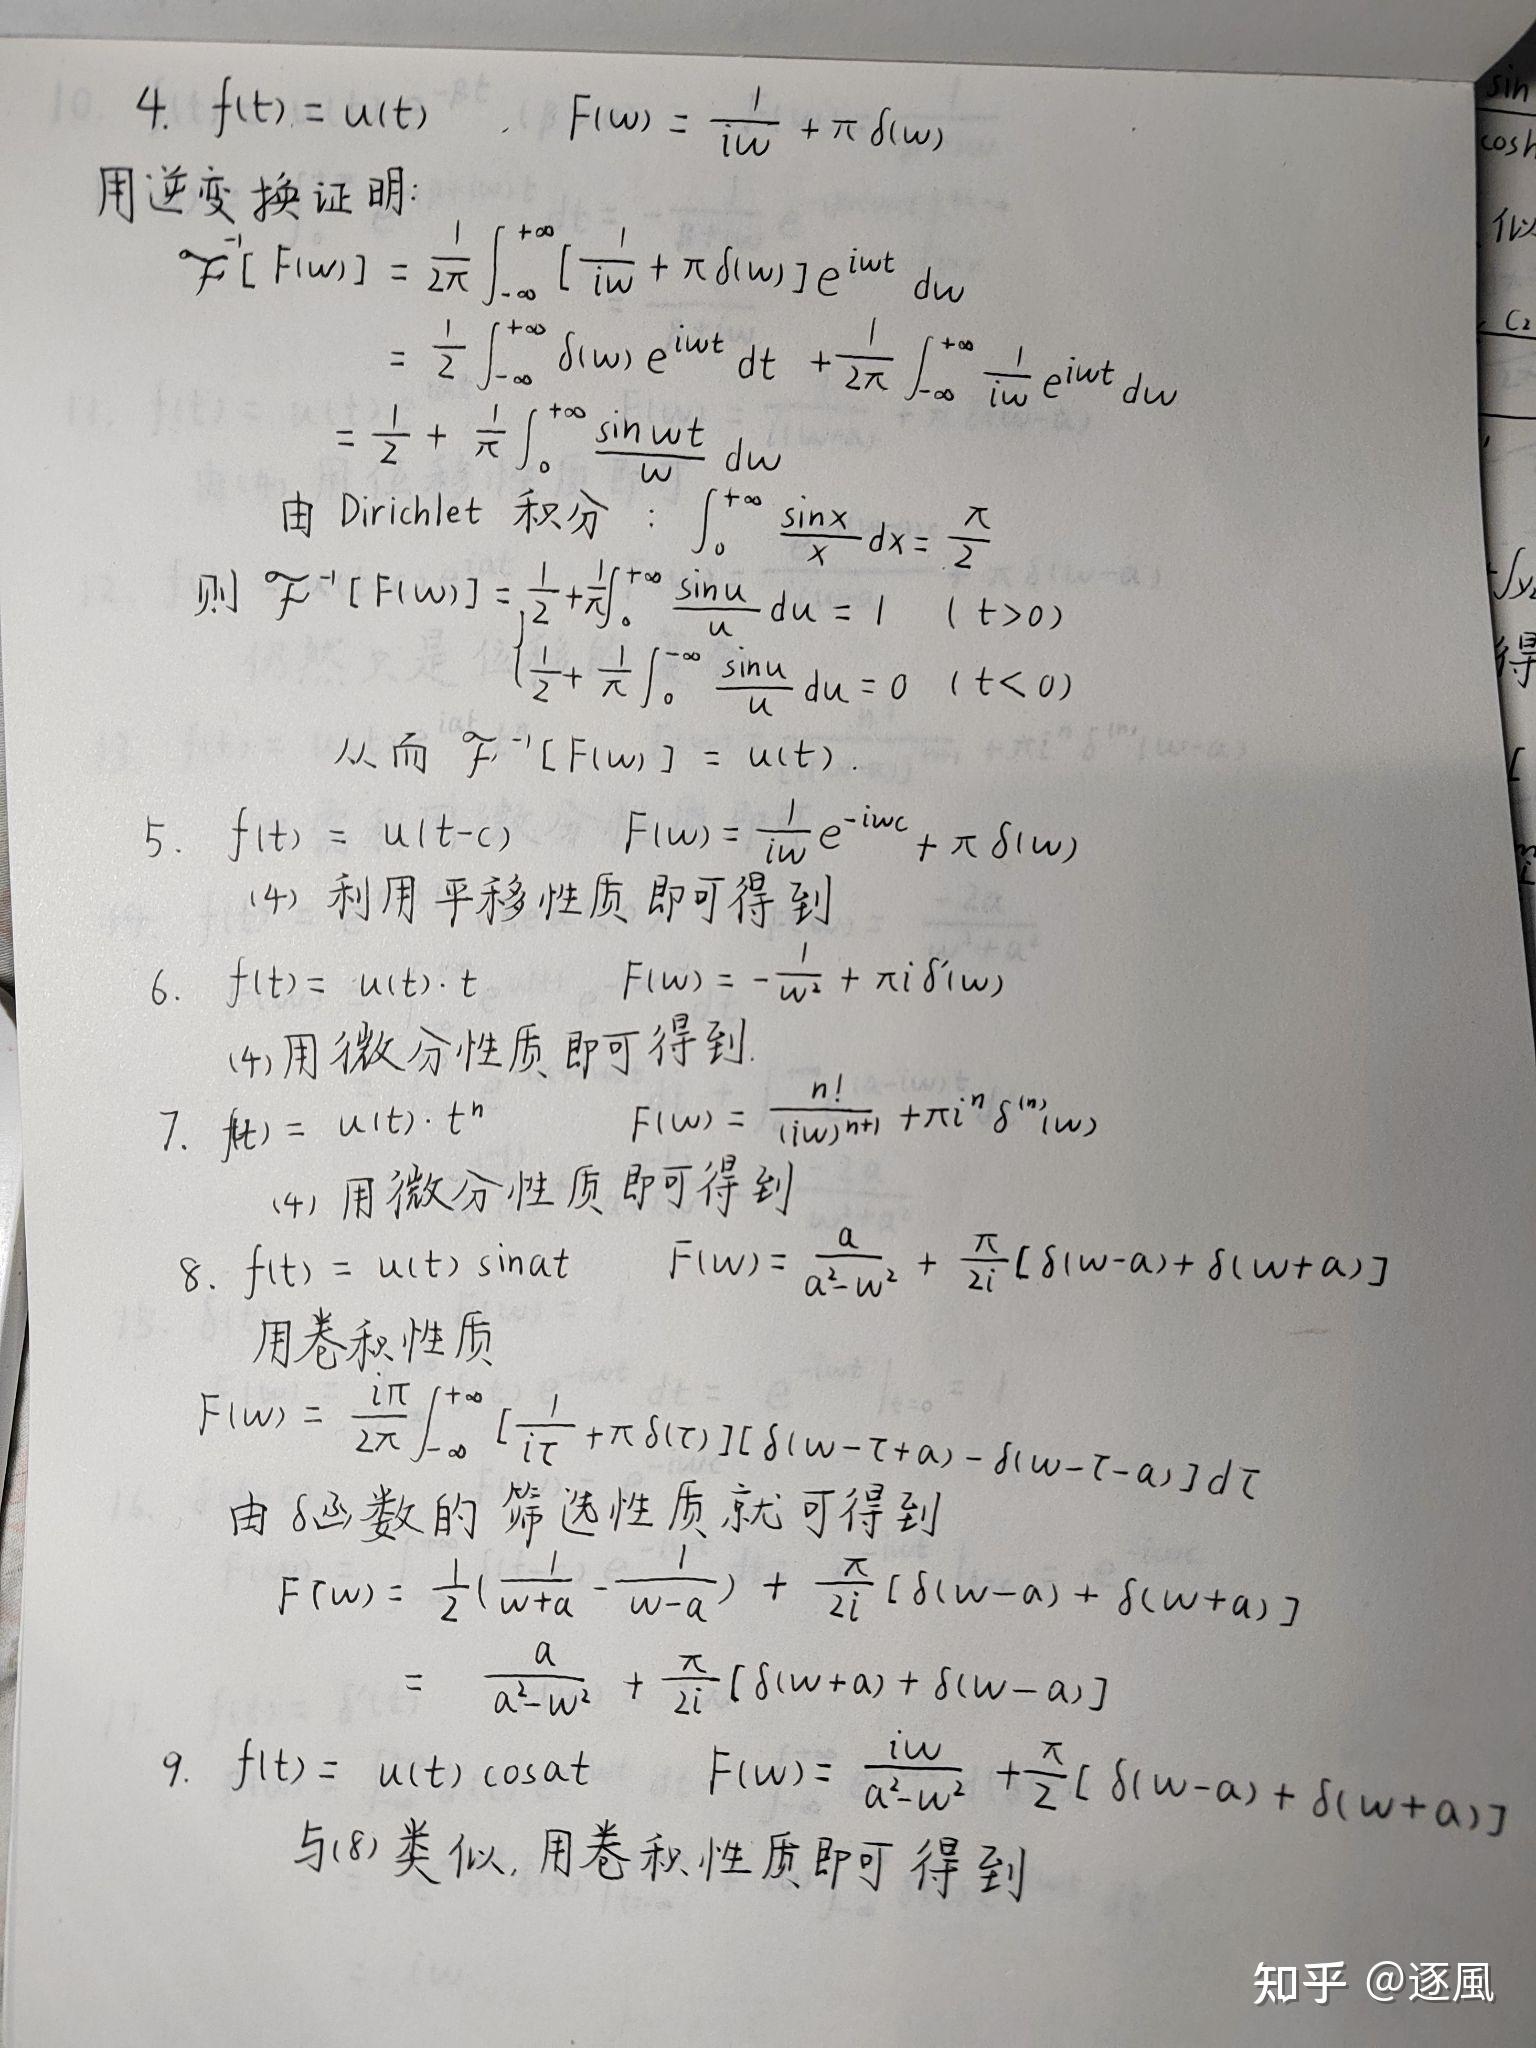 4. f(t) = u(t) , F(w) = 1/(iw) + π δ(w)
用逆变换证明:
ℱ⁻¹[F(w)] = 1/(2π) ∫_{-∞}^{+∞} [1/(iw) + π δ(w)] e^{iwt} dw
= 1/2 ∫_{-∞}^{+∞} δ(w) e^{iwt} dt + 1/(2π) ∫_{-∞}^{+∞} 1/(iw) e^{iwt} dw
= 1/2 + 1/π ∫_0^{+∞} sinwt/w dw
由 Dirichlet 积分 : ∫_0^{+∞} sinx/x dx = π/2
则 ℱ⁻¹[F(w)] = { 1/2 + 1/π ∫_0^{+∞} sinu/u du = 1 (t>0)
1/2 + 1/π ∫_0^{-∞} sinu/u du = 0 (t<0)
从而 ℱ⁻¹[F(w)] = u(t).
5. f(t) = u(t-c) F(w) = 1/(iw) e^{-iwc} + π δ(w)
(4) 利用平移性质即可得到
6. f(t) = u(t)·t F(w) = -1/w² + πi δ'(w)
(4) 用微分性质即可得到.
7. f(t) = u(t)·tⁿ F(w) = n!/(iw)^{n+1} + πiⁿ δ^{(n)}(w)
(4) 用微分性质即可得到
8. f(t) = u(t) sinat F(w) = a/(a²-w²) + π/(2i) [δ(w-a) + δ(w+a)]
用卷积性质
F(w) = iπ/(2π) ∫_{-∞}^{+∞} [1/(iτ) + π δ(τ)][δ(w-τ+a) - δ(w-τ-a)] dτ
由 δ函数的筛选性质就可得到
F(w) = 1/2 (1/(w+a) - 1/(w-a)) + π/(2i) [δ(w-a) + δ(w+a)]
= a/(a²-w²) + π/(2i) [δ(w+a) + δ(w-a)]
9. f(t) = u(t) cosat F(w) = iw/(a²-w²) + π/2 [δ(w-a) + δ(w+a)]
与(8) 类似, 用卷积性质即可得到
sin
cosh
似
C₂
得
知乎 @逐風